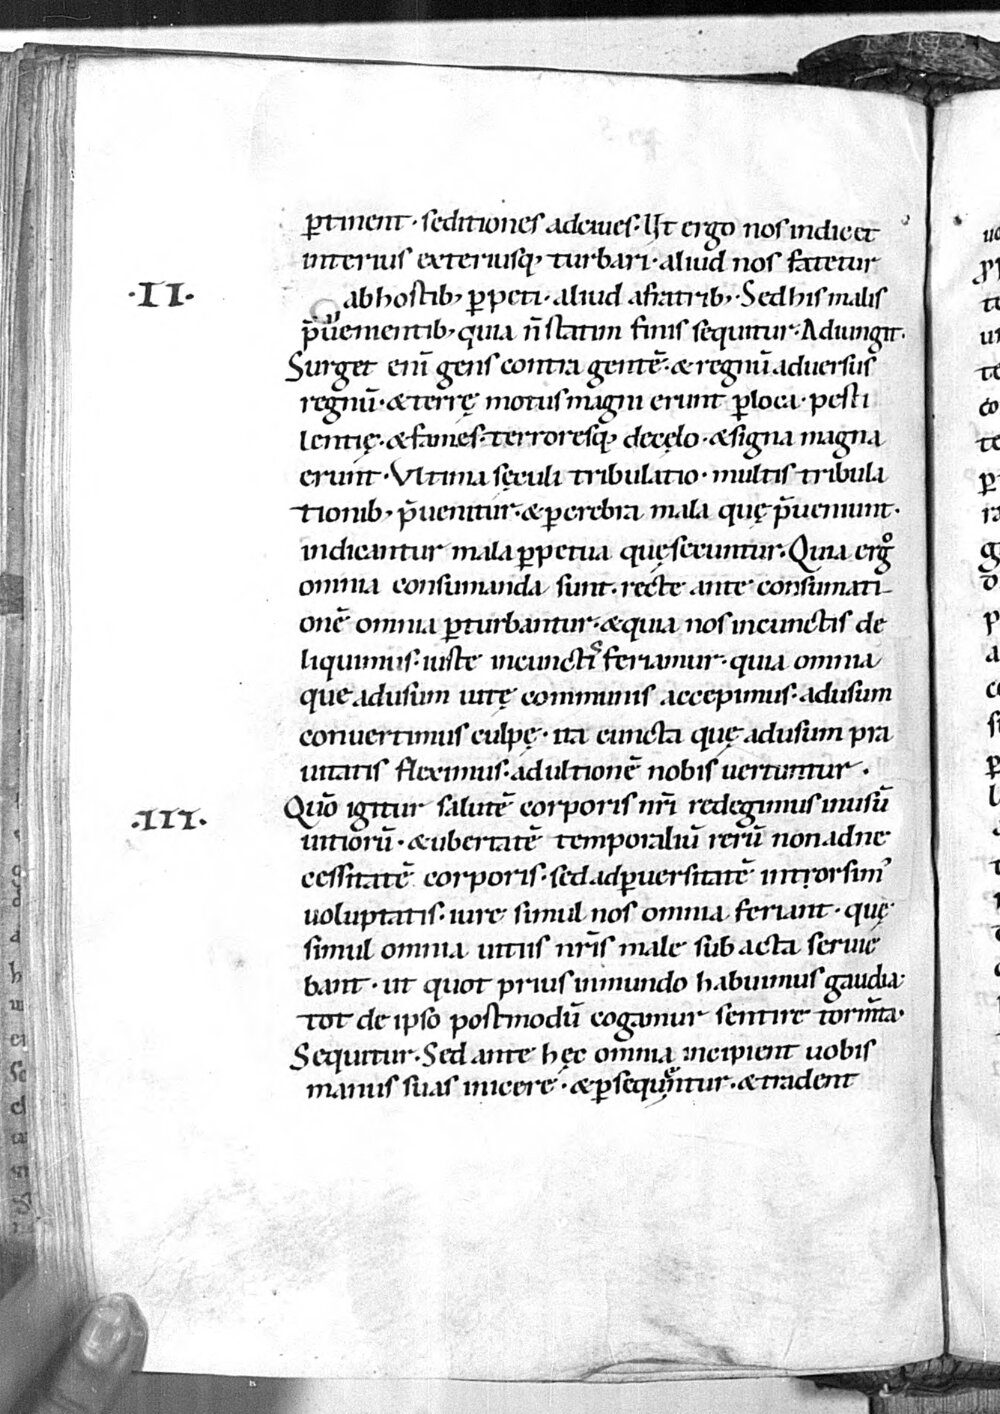 p̱tinent · seditiones ad ciues · Ut ergo nos indicet
interius exteriusq; turbari · aliud nos fatetur
·II· ab hostib; p̱peti · aliud a fratrib; · Sed his malis
p̄uenientib; quia n̄ statim finis sequitur · Adiungit ·
Surget eni̅ gens contra gente̅ · & regnu̅ aduersus
regnu̅ · & terrę motus magni erunt p̱ loca · pesti
lentię · & fames · terroresq; de cęlo · & signa magna
erunt · Vltima sęculi tribulatio · multis tribula
tionib; p̄uenitur · & p̱ crebra mala quę p̄ueniunt ·
indicantur mala p̱petua quę secuntur · Quia ergo
omnia consumanda sunt · recte ante consumati
one̅ omnia p̱turbantur · & quia nos in cunctis de
liquimus · iuste in cunctis ferimur · quia omnia
que ad usum uitę communis accepimus · ad usum
conuertimus culpę · ita cuncta quę ad usum pra
uitatis fleximus · ad ultione̅ nobis uertuntur ·
·III· Quo̅ igitur salute̅ corporis nr̅i redegimus in usu̅
uitioru̅ · & ubertate̅ temporaliu̅ reru̅ non ad ne
cessitate̅ corporis · sed ad p̱uersitate̅ introrsim
uoluptatis · iure simul nos omnia feriunt · quę
simul omnia uitiis nr̅is male subacta seruie
bant · ut quot prius in mundo habuimus gaudia ·
tot de ipso postmodu̅ cogamur sentire torm̅ta ·
Sequitur · Sed ante hęc omnia incipient uobis
manus suas inicere · & p̱sequentur · & tradent